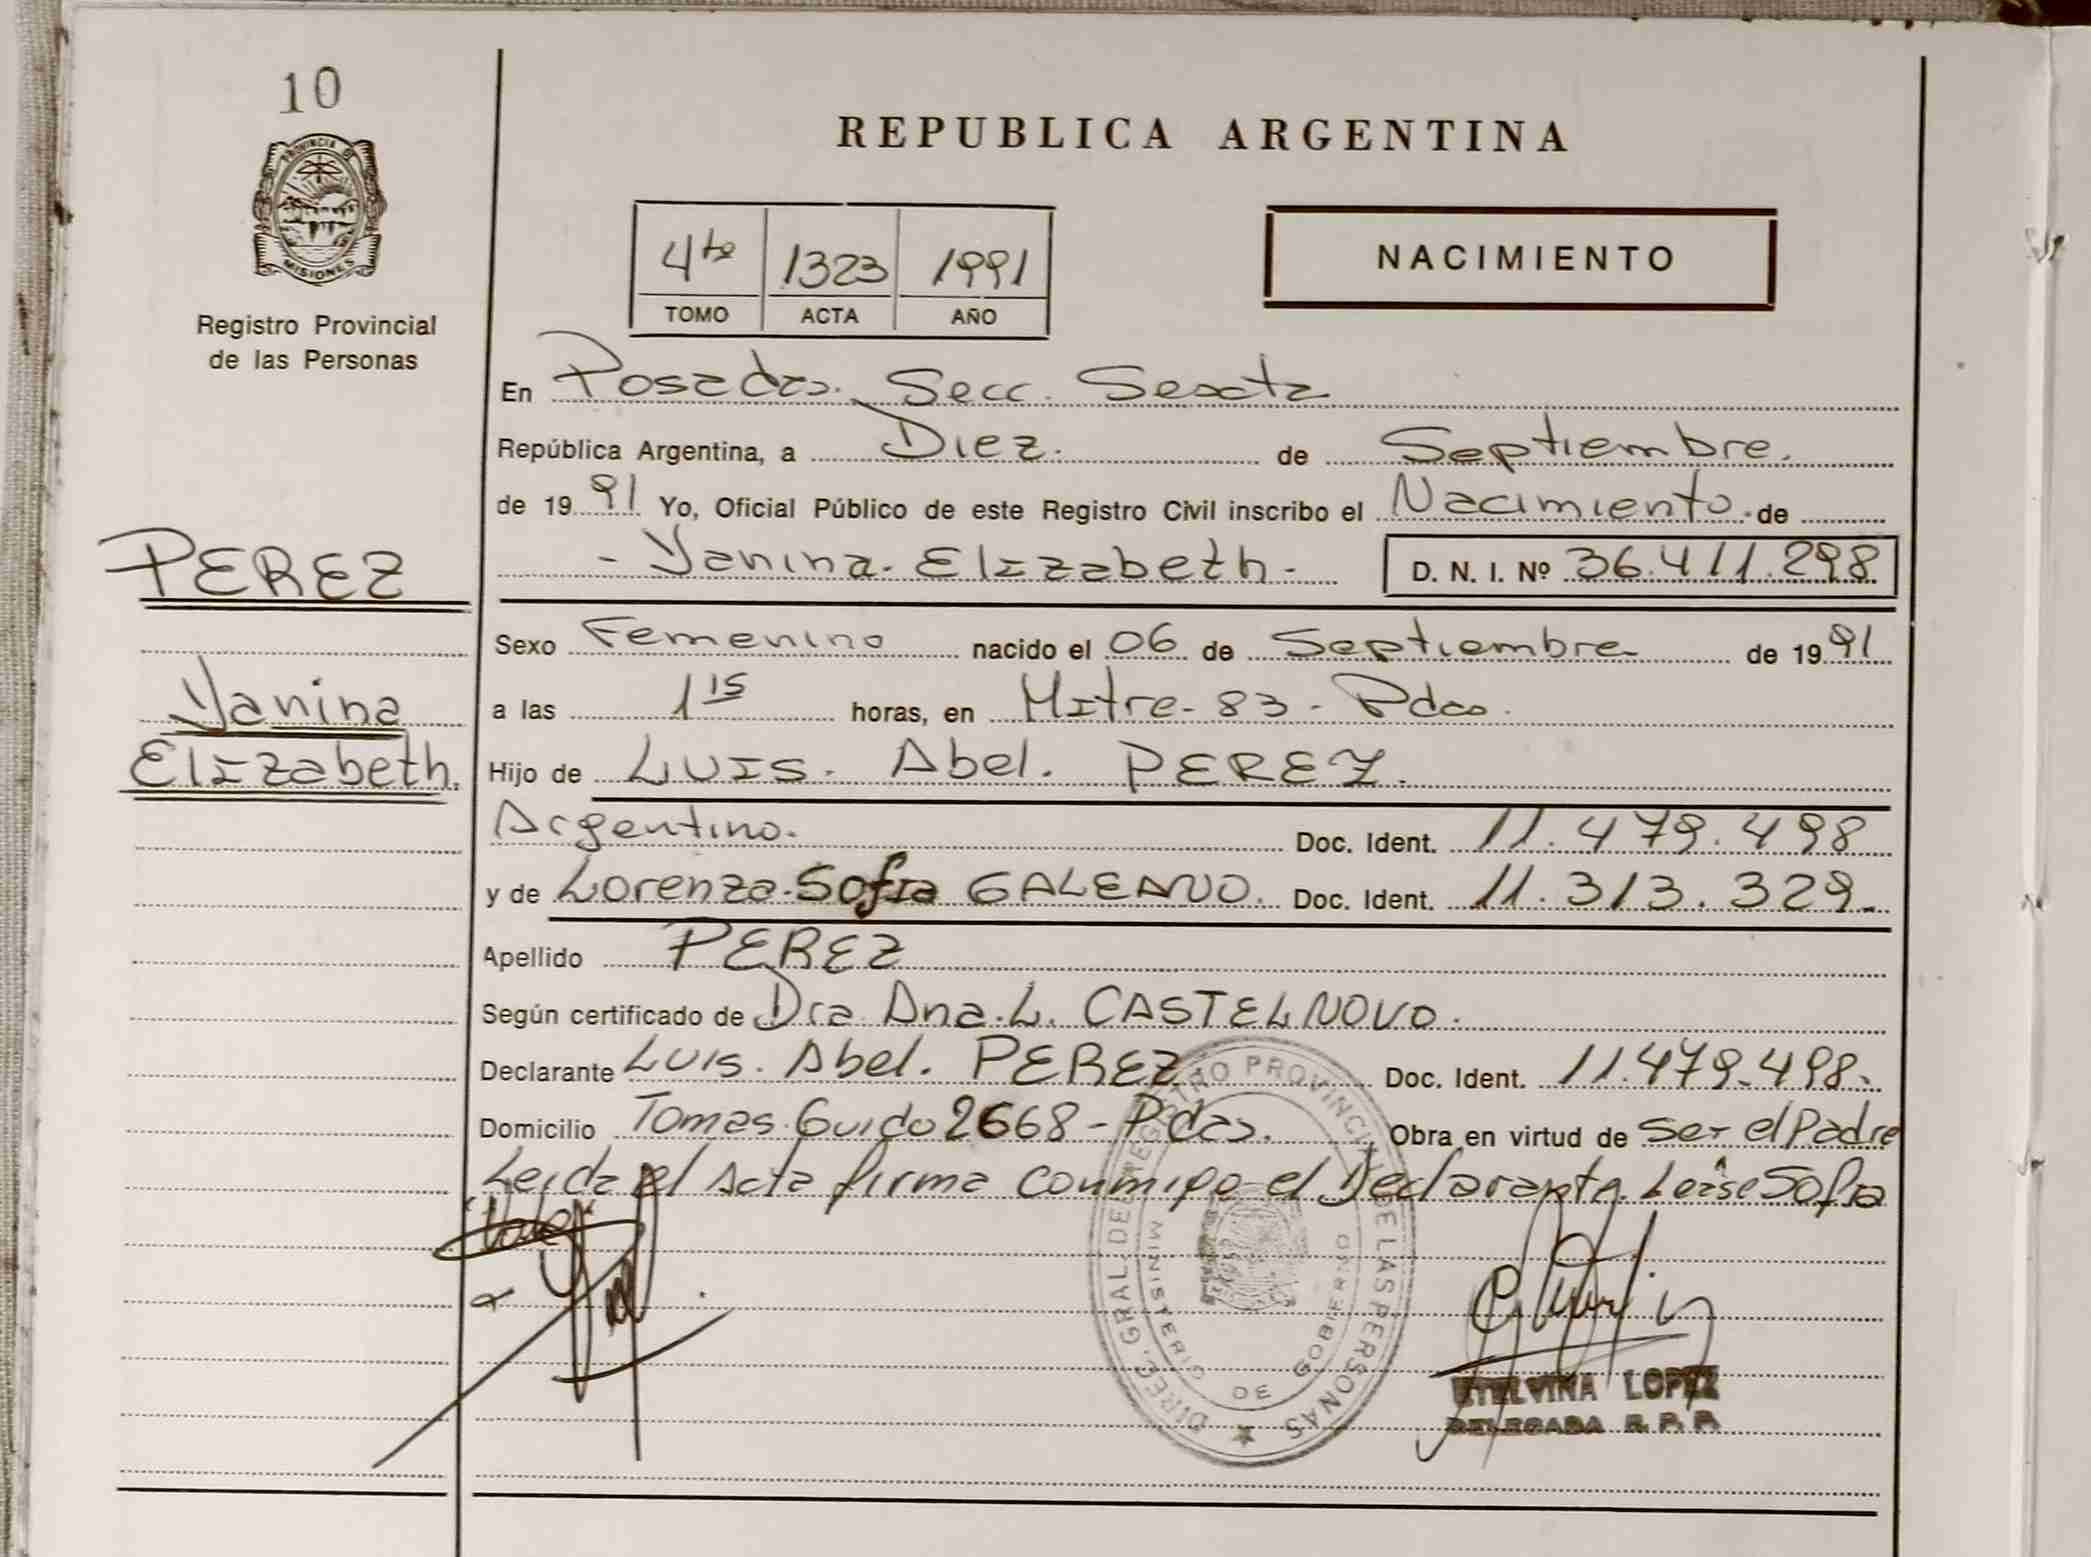 10
PROVINCIA DE
MISIONES
Registro Provincial
de las Personas
REPUBLICA ARGENTINA
4to 1323 1991
TOMO ACTA AÑO
NACIMIENTO
En Posadas. Secc. Sexta
República Argentina, a Diez. de Septiembre.
de 1991 Yo, Oficial Público de este Registro Civil inscribo el Nacimiento. de
- Yanina. Elizabeth - D. N. I. Nº 36.411.298
PEREZ
Yanina
Elizabeth.
Sexo Femenino nacido el 06 de Septiembre de 1991
a las 1 15 horas, en Mitre - 83 - Pdas.
Hijo de Luis. Abel. PEREZ.
Argentino. Doc. Ident. 11.479.498
y de Lorenza. Sofia GALEANO. Doc. Ident. 11.313.329.
Apellido PEREZ
Según certificado de Dra Ana. L. CASTELNOVO.
Declarante Luis. Abel. PEREZ Doc. Ident. 11.479.498.
Domicilio Tomas Guido 2668 - Pdas. Obra en virtud de ser el Padre
Leida el Acta firma conmigo el Declarante. Léase Sofia
Vale
DIREC. GRAL. DE REGISTRO PROVINCIAL DE LAS PERSONAS
MINISTERIO DE GOBIERNO
ETELVINA LOPEZ
DELEGADA R. P. P.